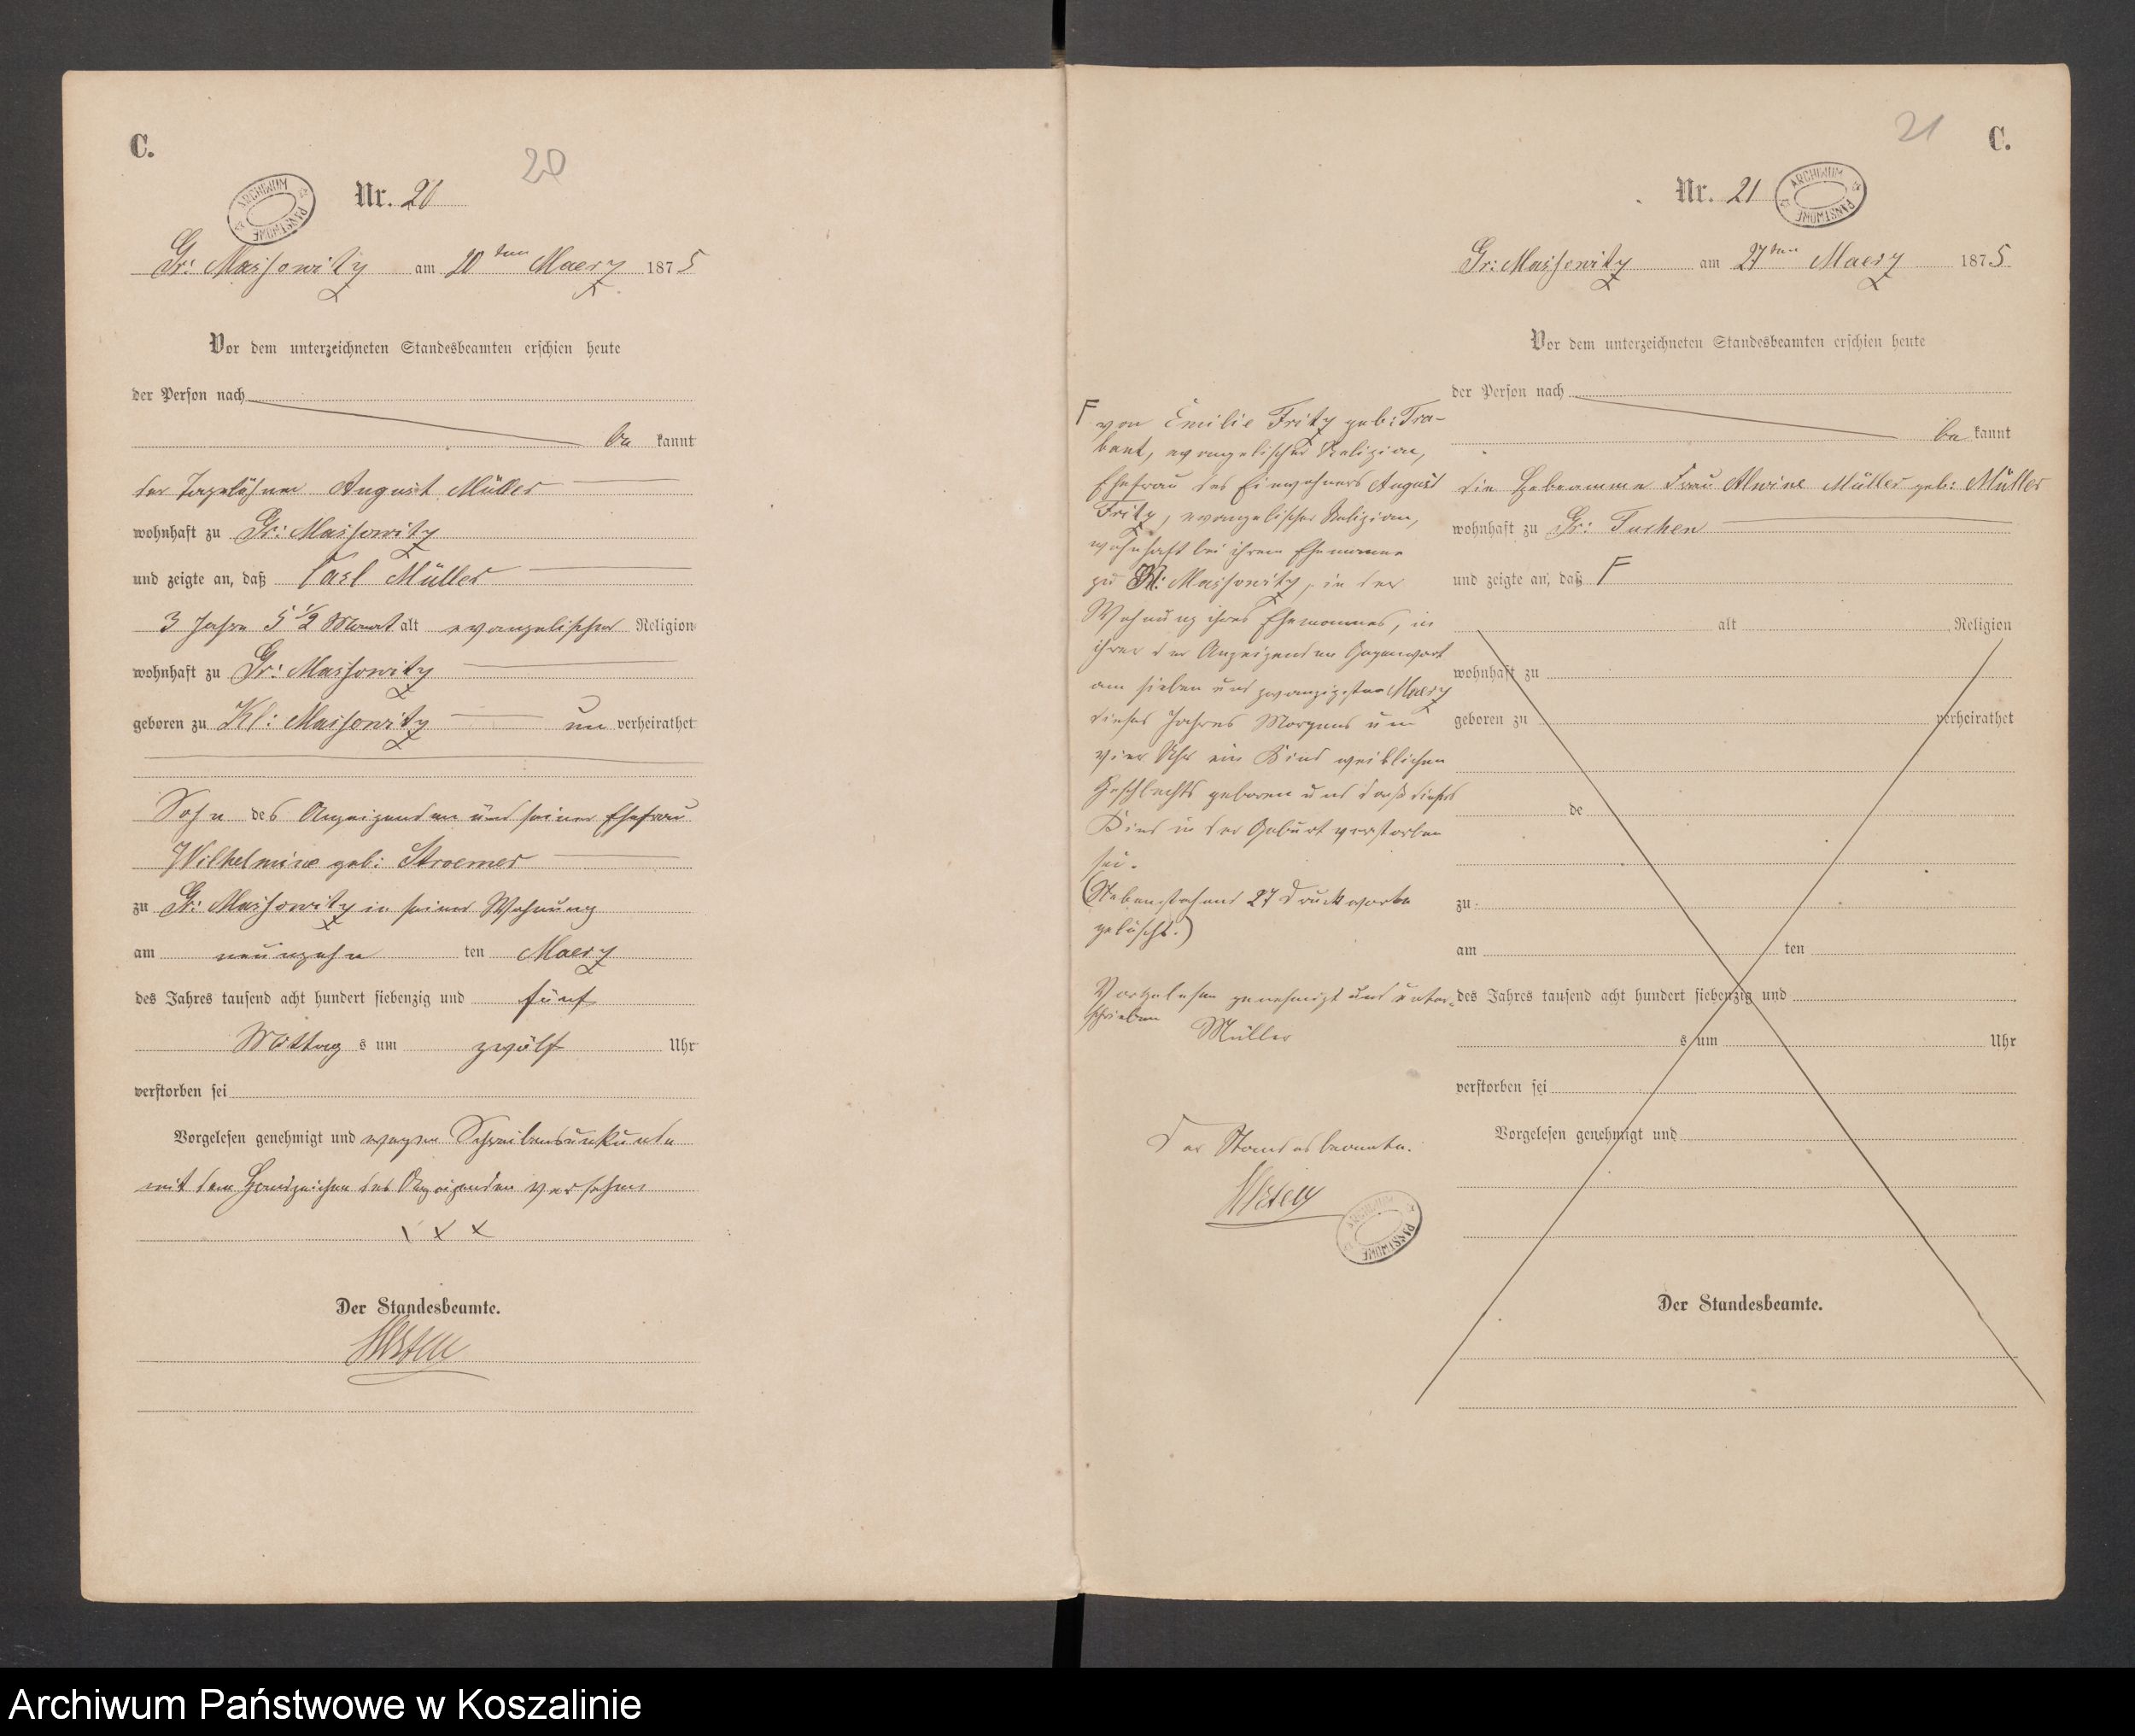 C.
20
Nr. 20
ARCHIWUM PAŃSTWOWE
Gr: Massowitz am 20ten Maerz 1875
Vor dem unterzeichneten Standesbeamten erschien heute
der Person nach
be kannt
der Tagelöhner August Müller
wohnhaft zu Gr: Massowitz
und zeigte an, daß Carl Müller
3 Jahre 5 1/2 Monat alt evangelischer Religion
wohnhaft zu Gr: Massowitz
geboren zu Kl: Massowitz un verheirathet
Sohn des Anzeigenden und seiner Ehefrau
Wilhelmine geb: Stroemer
zu Gr: Massowitz in seiner Wohnung
am neunzehn ten Maerz
des Jahres tausend acht hundert siebenzig und fünf
Mittag s um zwölf Uhr
verstorben sei
Vorgelesen genehmigt und wegen Schreibensunkunde
mit dem Handzeichen des Anzeigenden versehen
x x x
Der Standesbeamte.
21
C.
Nr. 21
ARCHIWUM PAŃSTWOWE
Gr: Massowitz am 27ten Maerz 1875
Vor dem unterzeichneten Standesbeamten erschien heute
der Person nach
be kannt
die Hebeamme Frau Alwine Müller geb: Müller
wohnhaft zu Gr: Tuchen
und zeigte an, daß F
alt Religion
wohnhaft zu
geboren zu verheirathet
de
zu
am ten
des Jahres tausend acht hundert siebenzig und
s um Uhr
verstorben sei
Vorgelesen genehmigt und
Der Standesbeamte.
F von Emilie Fritz geb: Tra-
bant, evangelischer Religion,
Ehefrau des Einwohners August
Fritz, evangelischer Religion,
wohnhaft bei ihrem Ehemanne
zu Kl: Massowitz, in der
Wohnung ihres Ehemannes, in
ihrer der Anzeigenden Gegenwart
am sieben und zwanzigsten Maerz
dieses Jahres Morgens um
vier Uhr ein Kind weiblichen
Geschlechts geboren und daß dieses
Kind in der Geburt verstorben
sei.
(Nebenstehend 27 Druckworte
gelöscht.)
Vorgelesen genehmigt und unter-
schrieben
Müller
Der Standesbeamte.
ARCHIWUM PAŃSTWOWE
Archiwum Państwowe w Koszalinie